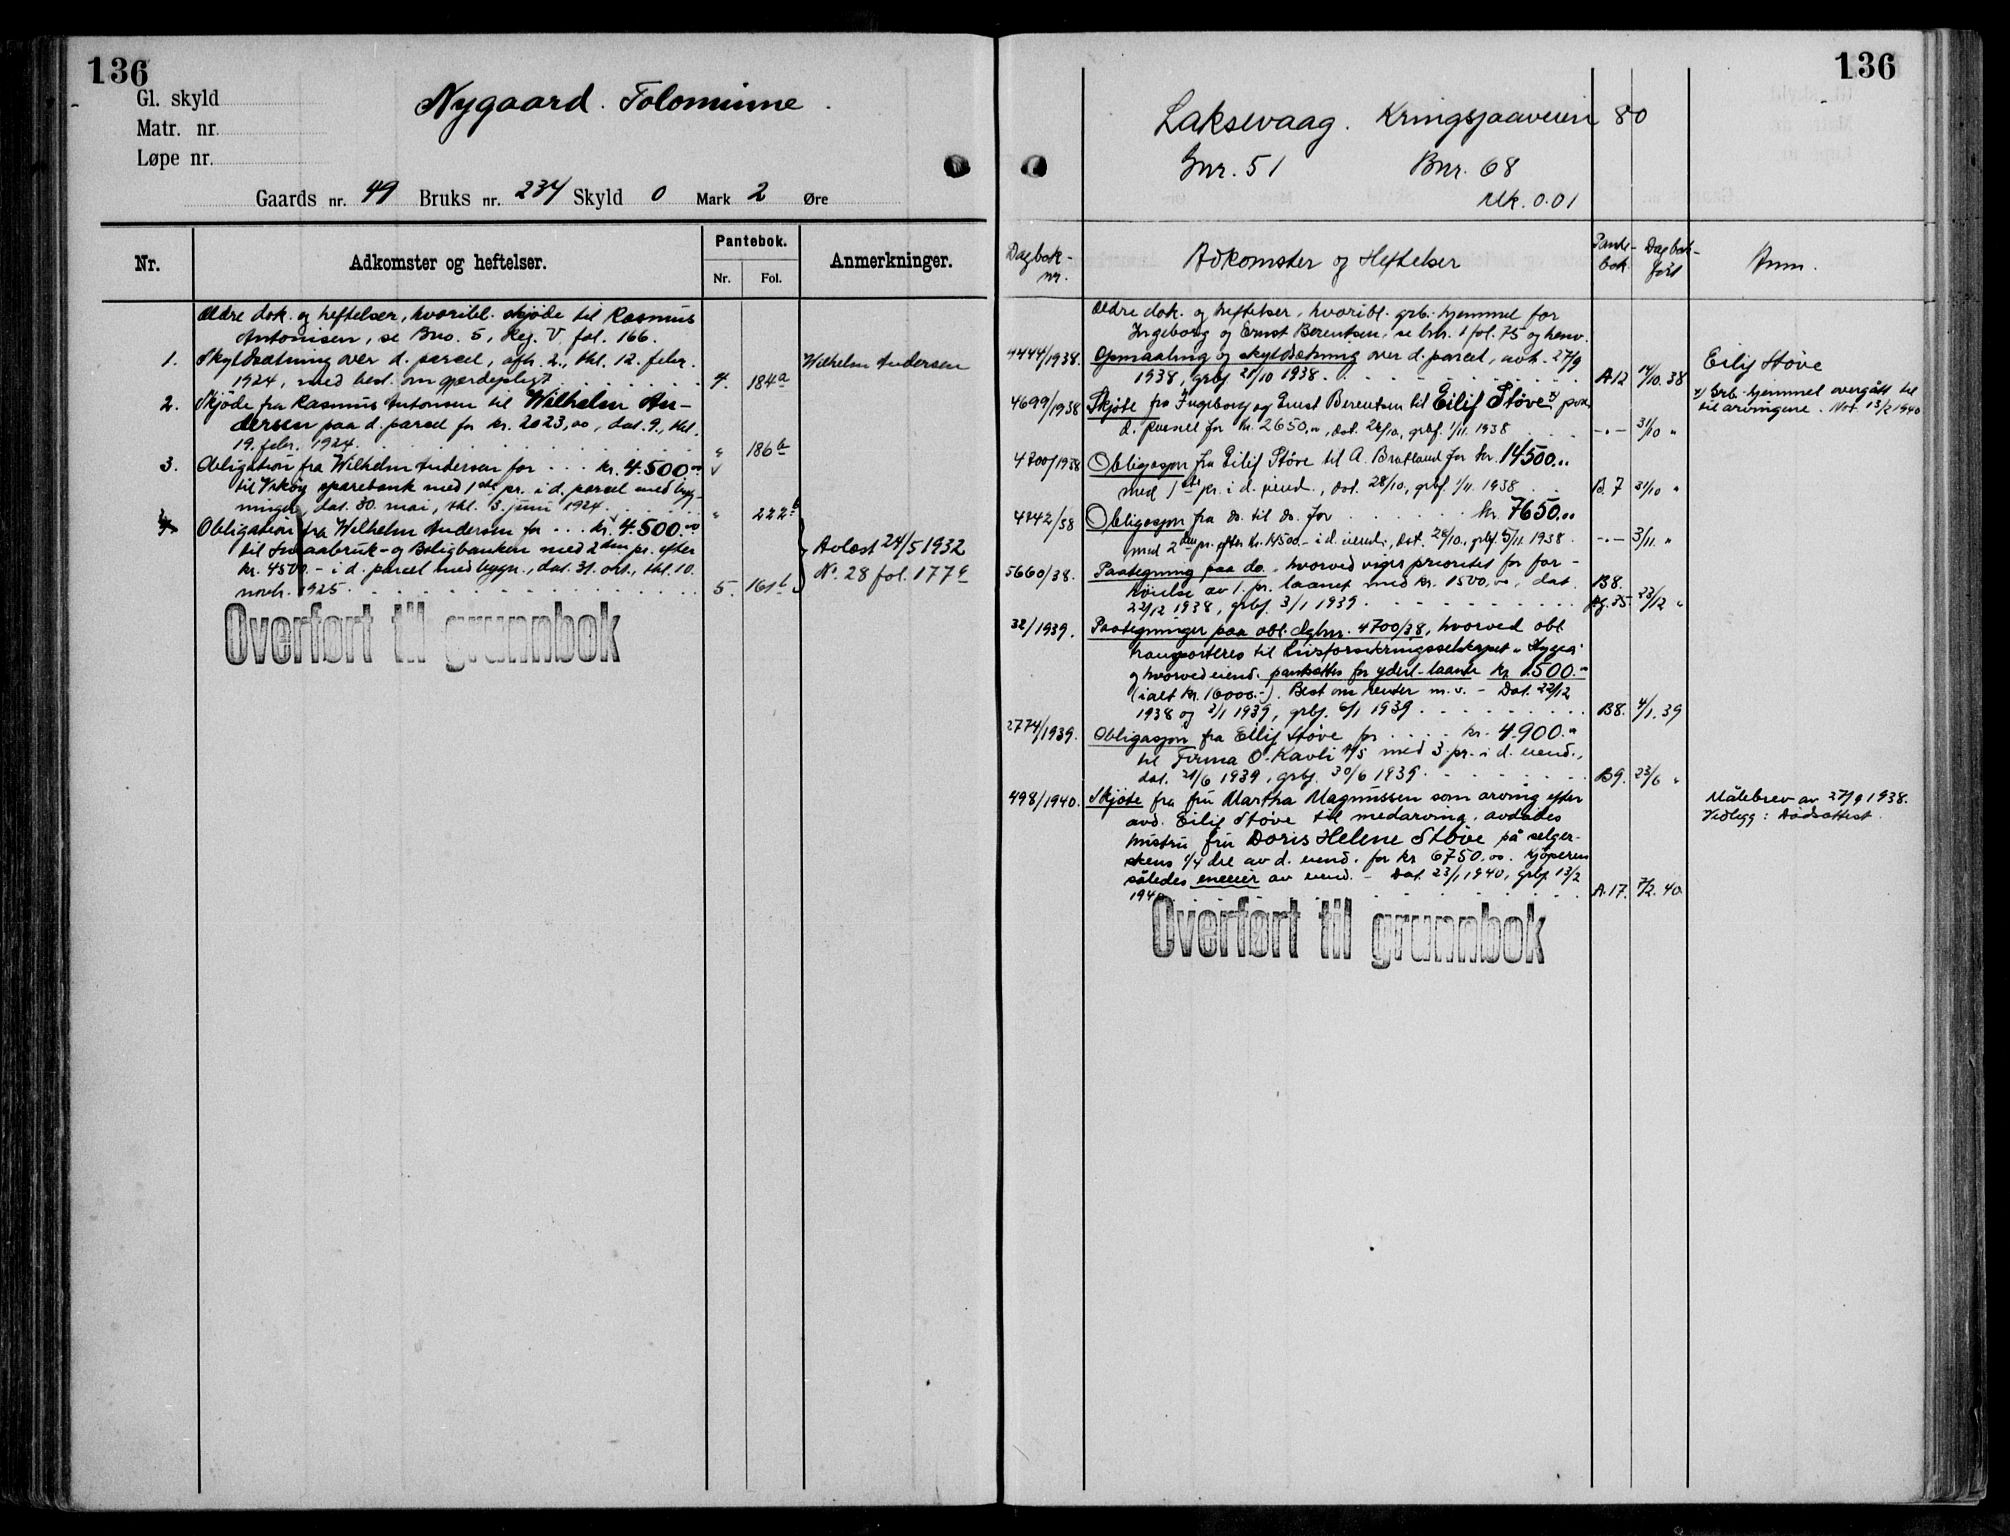 136
Gl. skyld
Matr. nr.
Løpe nr.
Nygaard. Solominne.
Gaards nr. 49 Bruks nr. 234 Skyld 0 Mark 2 Øre
Nr. Adkomster og heftelser. Pantebok. Anmerkninger.
Nr. Fol.
Ældre dok. og heftelser, hvoribl. skjøde til Rasmus
Antonisen, se Bno. 5, Reg. V. fol. 166.
1. Skyldsætning over d. parcel, afh. 2., thl. 12. febr. Wilhelm Andersen
1924, med best. om gjerdepligt 4. 184a
2. Skjøde fra Rasmus Antonsen til Wilhelm An-
dersen paa d. parcel for kr. 2023,00, dat. 9., thl.
19. febr. 1924. " 186b
3. Obligation fra Wilhelm Andersen for . . . kr. 4.500.00
til Askøy sparebank med 1ste pr. i d. parcel med byg-
ninger, dat. 30. mai, thl. 3. juni 1924. " 222b
4. Obligation fra Wilhelm Andersen for . . . kr. 4.500.00
til Smaabruk- og Boligbanken med 2den pr. efter
kr. 4500.- i d. parcel med bygn., dat. 31. okt., thl. 10.
novbr. 1925. 5. 161b
Avløst 24/5 1932
No. 28 fol. 177a
Overført til grunnbok
136
Laksevaag. Kringsjaaveien 80
Gnr. 51 Bnr. 68
Mk. 0.01
Dagbok-nr. Adkomster og Heftelser Pante-bok. Dagbok-ført Anm.
Ældre dok. og heftelser, hvoribl. grb. hjemmel for
Ingeborg og Ernst Berentsen, se bnr. 1 fol. 75 og henv.
4444/1938. Opmaaling og skyldsetning over d. parcel, avh. 27/9 Eilif Støve
1938, grbf. 21/10 1938. A12 14/10.38
x) Grb. hjemmel overgått til
til arvingene. Not. 13/2 1940
4699/1938 Skjøte fra Ingeborg og Ernst Berentsen til Eilif Støve x) paa
d. parcel for kr. 2650,00, dat. 28/10, grbf. 1/11 1938 -"- 31/10 "
4700/1938 Obligasjon fra Eilif Støve til A. Bratland for kr. 14500.00
med 1ste pr. i d. eiend., dat. 28/10, grbf. 1/11 1938 B.7 31/10 "
4742/38 Obligasjon fra do. til do. for kr. 7650.00
med 2den pr. efter kr. 14500.- i d. eiend., dat. 28/10, grbf. 5/11 1938. -"- 3/11. "
5660/38. Paategning paa do., hvorved viges prioritet for for-
høielse av 1. pr. laanet med kr. 1500,00, dat. B8.
22/12 1938, grbf. 3/1 1939. 23/12 "
32/1939. Paategninger paa obl. dgbnr. 4700/38, hvorved obl.
transporteres til Livsforsikringsselskapet "Hygea"
og hvorved eiend. pantsættes for yderl. laante kr. 1.500.00
(ialt kr. 16000.-). Best. om renter m.v. - Dat. 22/12
1938 og 2/1 1939, grbf. 6/1 1939. B8. 4/1. 39
2774/1939. Obligasjon fra Eilif Støve for . . . . kr. 4.900.00
til Firma O. Kavli A/S med 3. pr. i d. eiend.,
dat. 21/6 1939, grbf. 30/6 1939. B9. 23/6 "
498/1940. Skjøte fra fru Martha Magnussen som arving efter Målebrev av 27/9 1938.
avd. Eilif Støve til medarving, avdødes Vedlegg: Dødsattest.
hustru fru Doris Helene Støve på selger-
skens 1/4 del av d. eiend. for kr 6750,00. Kjøperen
således eneeier av eiend. - Dat. 23/1 1940, grbf. 13/2
1940 A.17. 7/2. 40
Overført til grunnbok